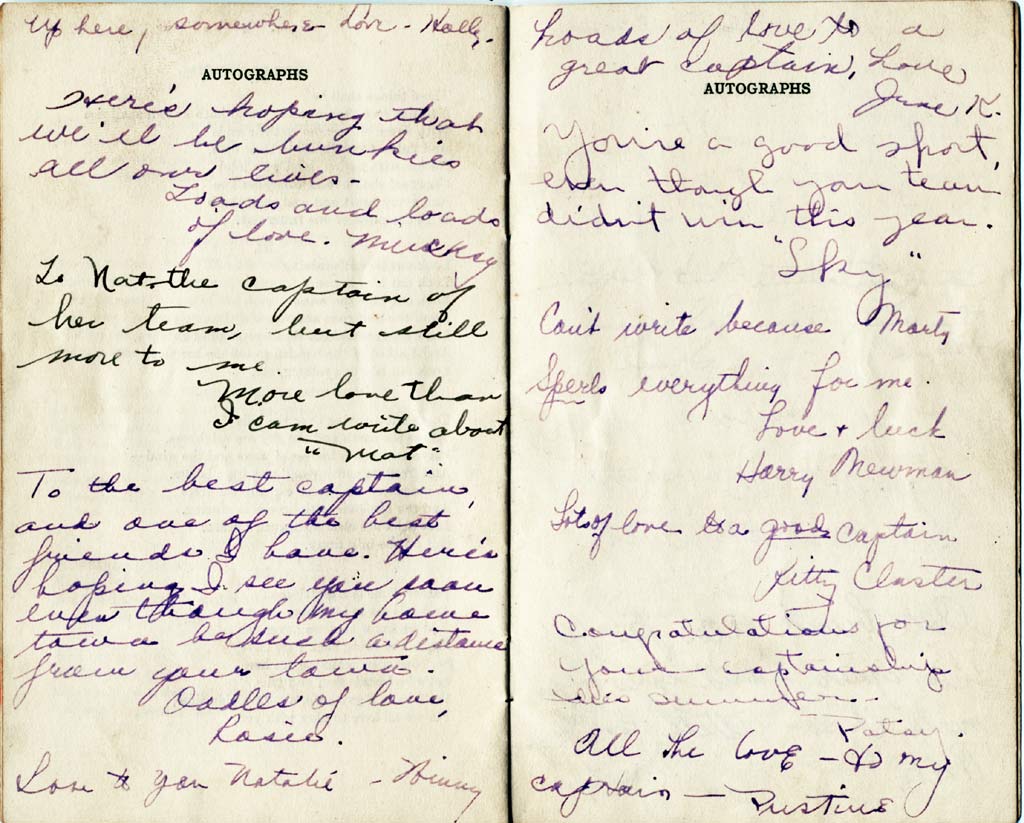 Up here, somewhere Love - Holly.
AUTOGRAPHS
Here's hoping that
we'll be bunkies
all our lives -
Loads and loads
of love. Mucky
To Nat, the captain of
her team, but still
more to me.
More love than
I cam write about
"Mat"
To the best captain,
and one of the best
friends I have. Here's
hoping I see you soon
even though my home
town be such a distance
from your town.
Oodles of love,
Rosie.
Love to you Natalie - Winny
Loads of love to a
great captain, Love
June K.
AUTOGRAPHS
You're a good sport,
even though your team
didn't win this year.
"Sky"
Can't write because Marty
Sperls everything for me.
Love + luck
Harry Newman
Lots of love to a good captain
Kitty Claster
Congratulations for
your captainship
this summer...
Patsy.
All the love - to my
captain -